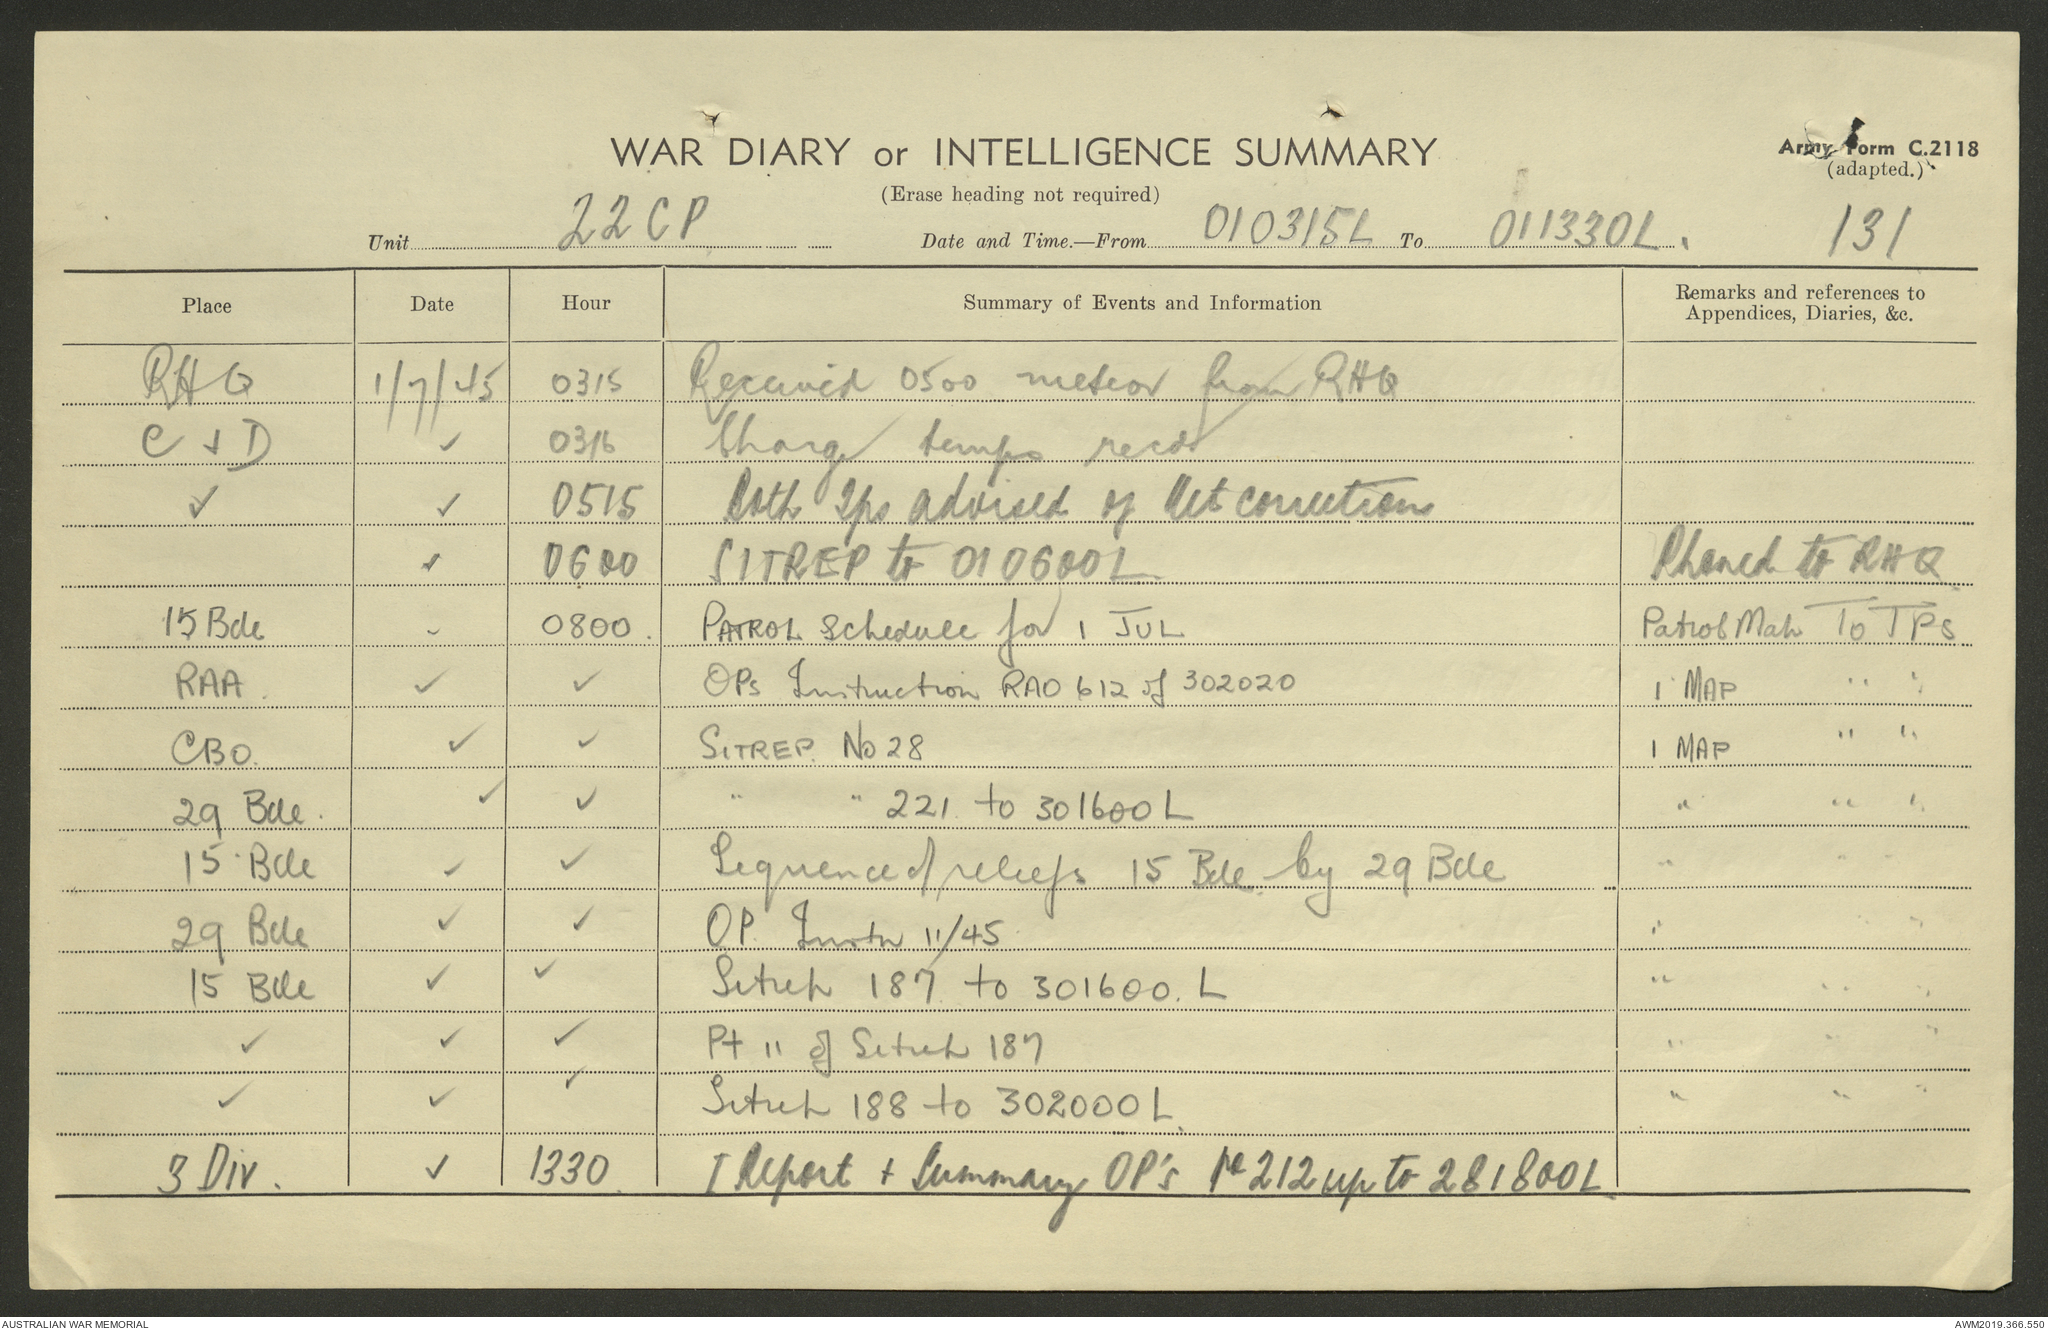 WAR DIARY or INTELLIGENCE SUMMARY
(Erase heading not required)
Army Form C.2118
(adapted.)
Unit 22 CP Date and Time.—From 010315L To 011330L. 131
Place Date Hour Summary of Events and Information Remarks and references to Appendices, Diaries, &c.
RHQ 1/7/45 0315 Received 0500 meteor from RHQ
C & D ✓ 0316 Charge temps recd
✓ ✓ 0515 Both Tps advised of Met corrections
✓ 0600 SITREP to 010600L Phoned to RHQ
15 Bde " 0800. PATROL Schedule for 1 JUL To TPs
RAA. ✓ ✓ OPs Instruction RAO 612 of 302020 1 MAP " "
CBO. ✓ ✓ SITREP. No 28 1 MAP " "
29 Bde. ✓ ✓ " " 221. to 301600L " " "
15 Bde ✓ ✓ Sequence of reliefs 15 Bde by 29 Bde " " "
29 Bde ✓ ✓ OP. Instn 11/45 " "
15 Bde ✓ ✓ Sitrep 187 to 301600. L " " "
✓ ✓ ✓ Pt 11 of Sitrep 187 " " "
✓ ✓ ✓ Sitrep 188 to 302000L " " "
3 Div. ✓ 1330. I Report + Summary OP's 212 up to 281800L
AUSTRALIAN WAR MEMORIAL
AWM2019.366.550